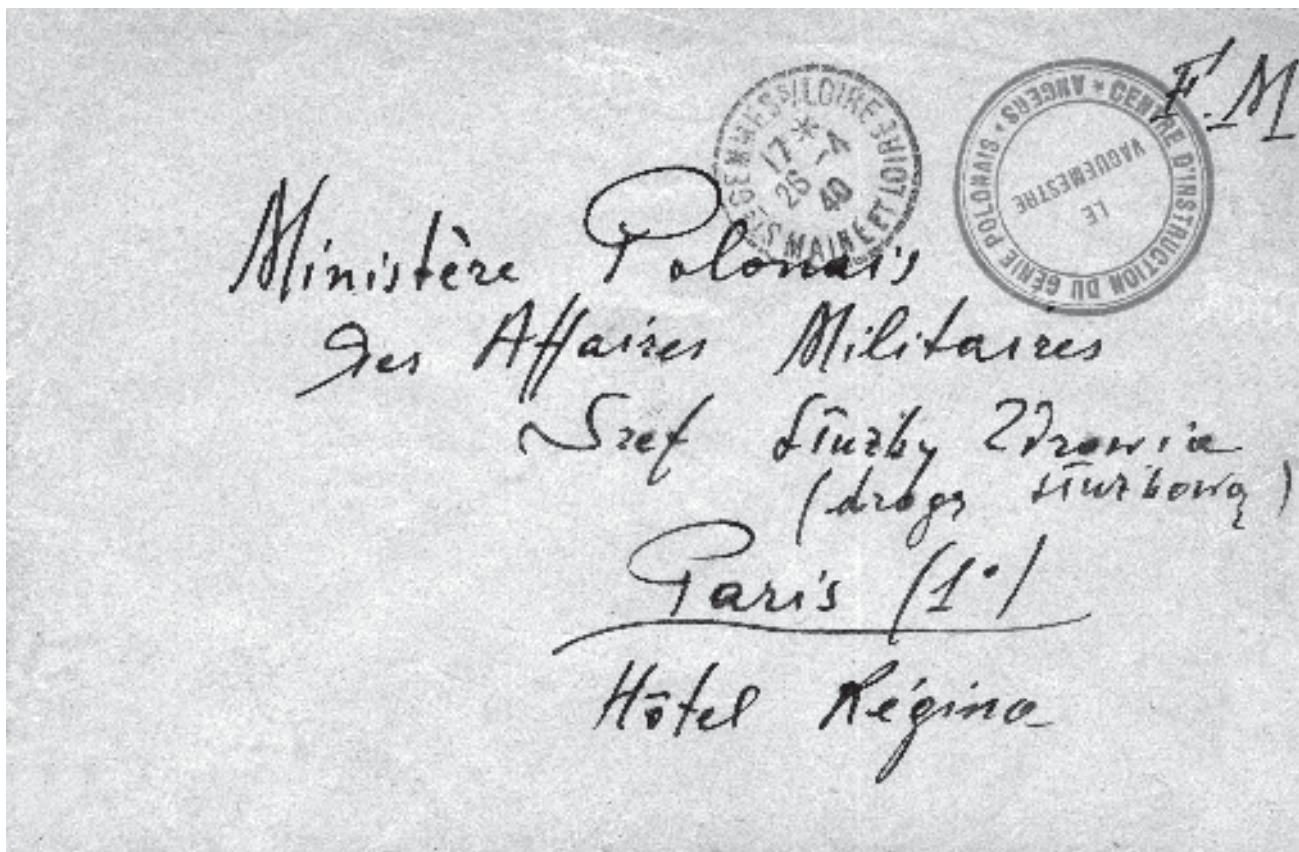 F.M
STE GEMMES S/LOIRE
17 * 26 -4 40
MAINE ET LOIRE
CENTRE D'INSTRUCTION DU GÉNIE POLONAIS * ANGERS *
LE
VAGUEMESTRE
Ministère Polonais
des Affaires Militaires
Szef Służby Zdrowia
(drogą służbową)
Paris (1°)
Hôtel Régina